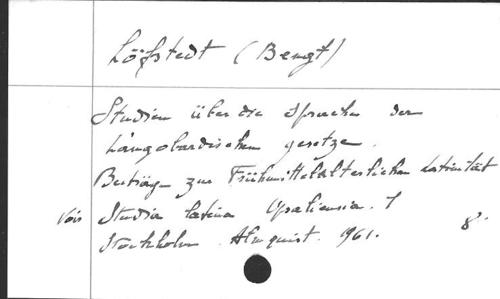 Löfstedt (Bengt)
Studien über die Sprache der
Langobardischen gesetze.
Beiträge zur Frühmittelalterlichen Latinität
Vois Studia latina Upsaliensia. 1
Stockholm. Almquist. 1961. 8°